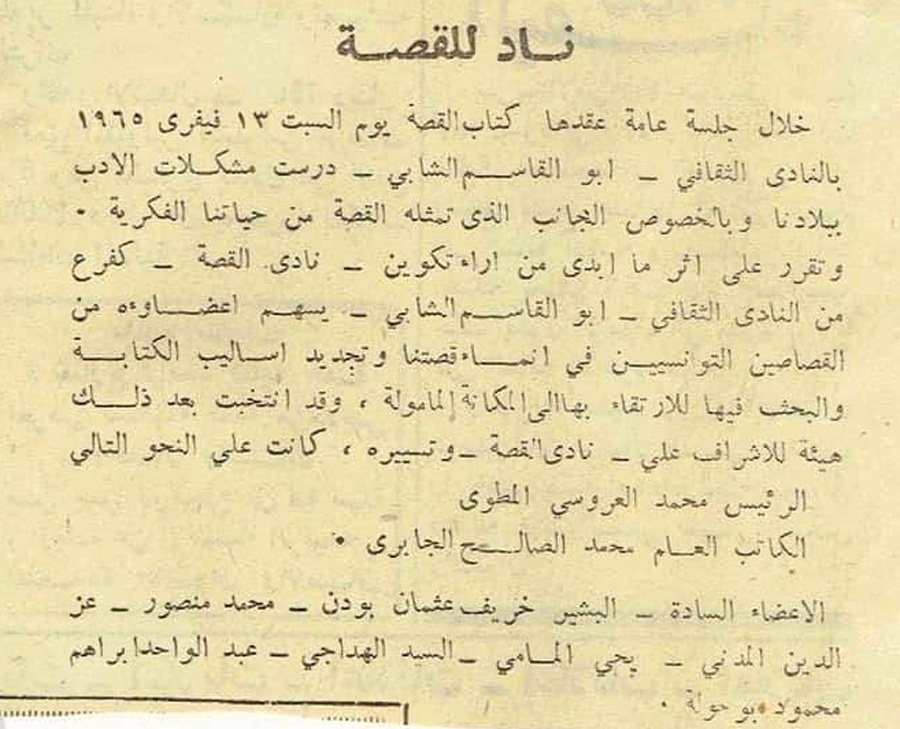 ناد للقصة
خلال جلسة عامة عقدها كتاب القصة يوم السبت ١٣ فيفرى ١٩٦٥
بالنادى الثقافي ــ ابو القاسم الشابي ــ درست مشكلات الادب
ببلادنا وبالخصوص الجانب الذى تمثله القصة من حياتنا الفكرية .
وتقرر على اثر ما ابدى من اراء تكوين ــ نادى القصة ــ كفرع
من النادى الثقافي ــ ابو القاسم الشابي ــ يسهم اعضاوءه من
القصاصين التوانسيين في انماء قصتنا وتجديد اساليب الكتابة
والبحث فيها للارتقاء بها الى المكانة المامولة ، وقد انتخبت بعد ذلك
هيئة للاشراف علي ــ نادى القصة ــ وتسييره ، كانت علي النحو التالي
الرئيس محمد العروسي المطوى
الكاتب العام محمد الصالح الجابرى .
الاعضاء السادة ــ البشير خريف عثمان بودن ــ محمد منصور ــ عز
الدين المدني ــ يحي المامي ــ السيد الهداجي ــ عبد الواحد ابراهم
محمود بو حولة .